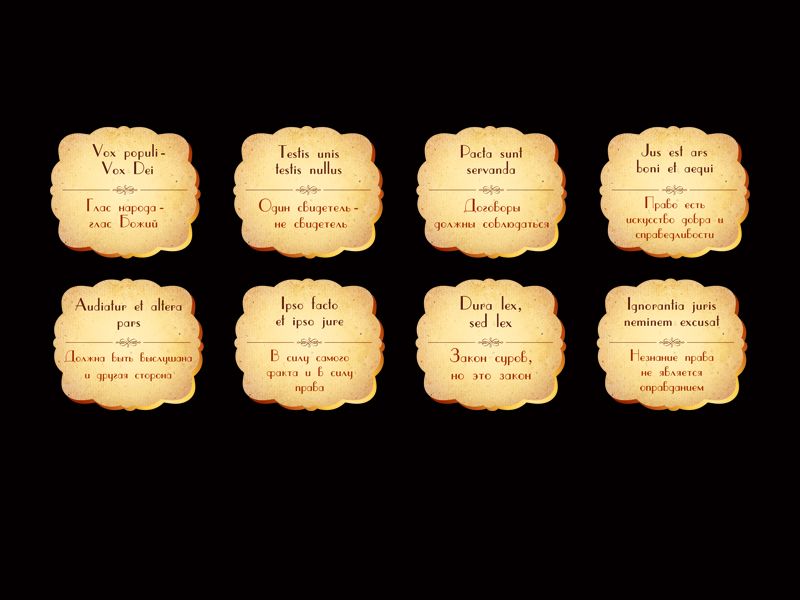 Vox populi -
Vox Dei
Глас народа -
глас Божий
Testis unis
testis nullus
Один свидетель -
не свидетель
Pacta sunt
servanda
Договоры
должны соблюдаться
Jus est ars
boni et aequi
Право есть
искусство добра и
справедливости
Audiatur et altera
pars
Должна быть выслушана
и другая сторона
Ipso facto
et ipso jure
В силу самого
факта и в силу
права
Dura lex,
sed lex
Закон суров,
но это закон
Ignorantia juris
neminem excusat
Незнание права
не является
оправданием